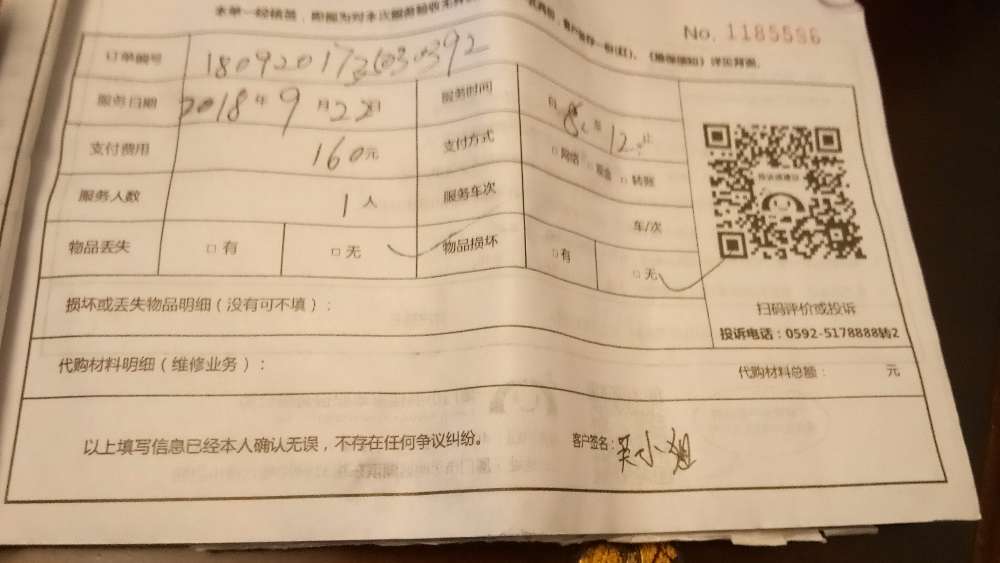 本单一经核签，即视为对本次服务验收无异
客户留存一份(红)，《維保細則》详见背面。
No. 1185586
订单编号 1809201736030392
服务日期 2018年9月22日 服务时间 自8:至12:止
支付费用 160元 支付方式 □网络 □现金 □转账
服务人数 1人 服务车次 车/次
物品丢失 □有 □无 物品损坏 □有 □无
投诉或建议
损坏或丢失物品明细（没有可不填）：
扫码评价或投诉
投诉电话：0592-5178888转2
代购材料明细（维修业务）： 代购材料总额： 元
以上填写信息已经本人确认无误，不存在任何争议纠纷。 客户签名：吴小姐